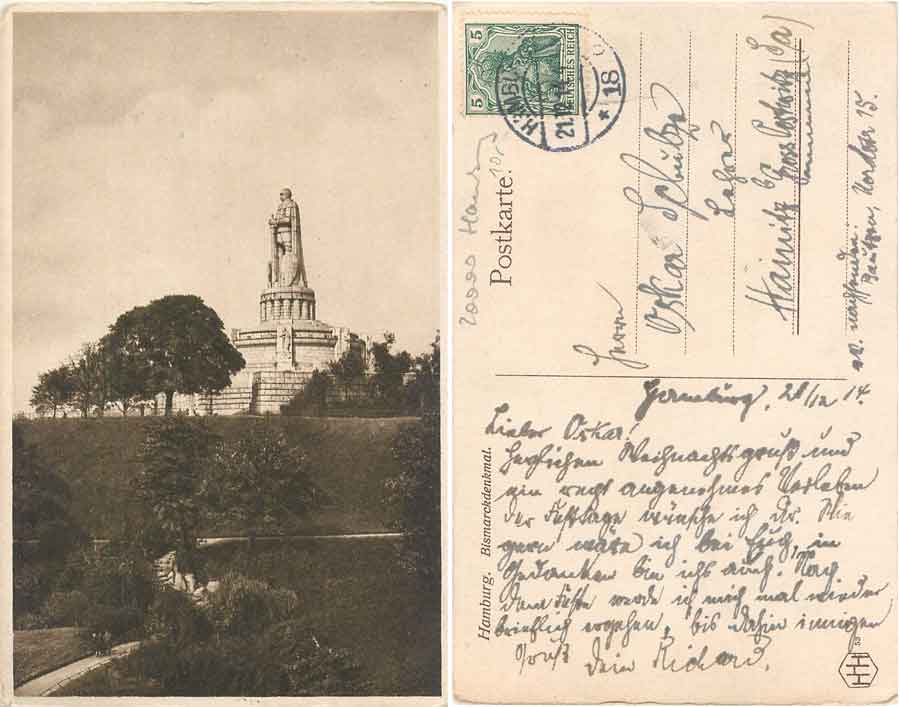 5
5
DEUTSCHES REICH
HAMBURG
21.12.14
* 18
20000 Hamburg
10,-
Postkarte.
Herrn
Oskar Schulze
Lehrer
Hainitz b/ Gross Postwitz (Sa)
Bautzen, Nordstr 15.
Hamburg. Bismarckdenkmal.
Hamburg, 20/12 14.
Lieber Oskar!
Herzlichen Weihnachtsgruß und
ein recht angenehmes Verleben
der Festtage wünsche ich Dir. Wie
gern wäre ich bei Euch, in
Gedanken bin ichs auch. Nach
dem Feste werde ich mich mal wieder
brieflich ergehen, bis dahin innigen
Gruß Dein Richard.
53